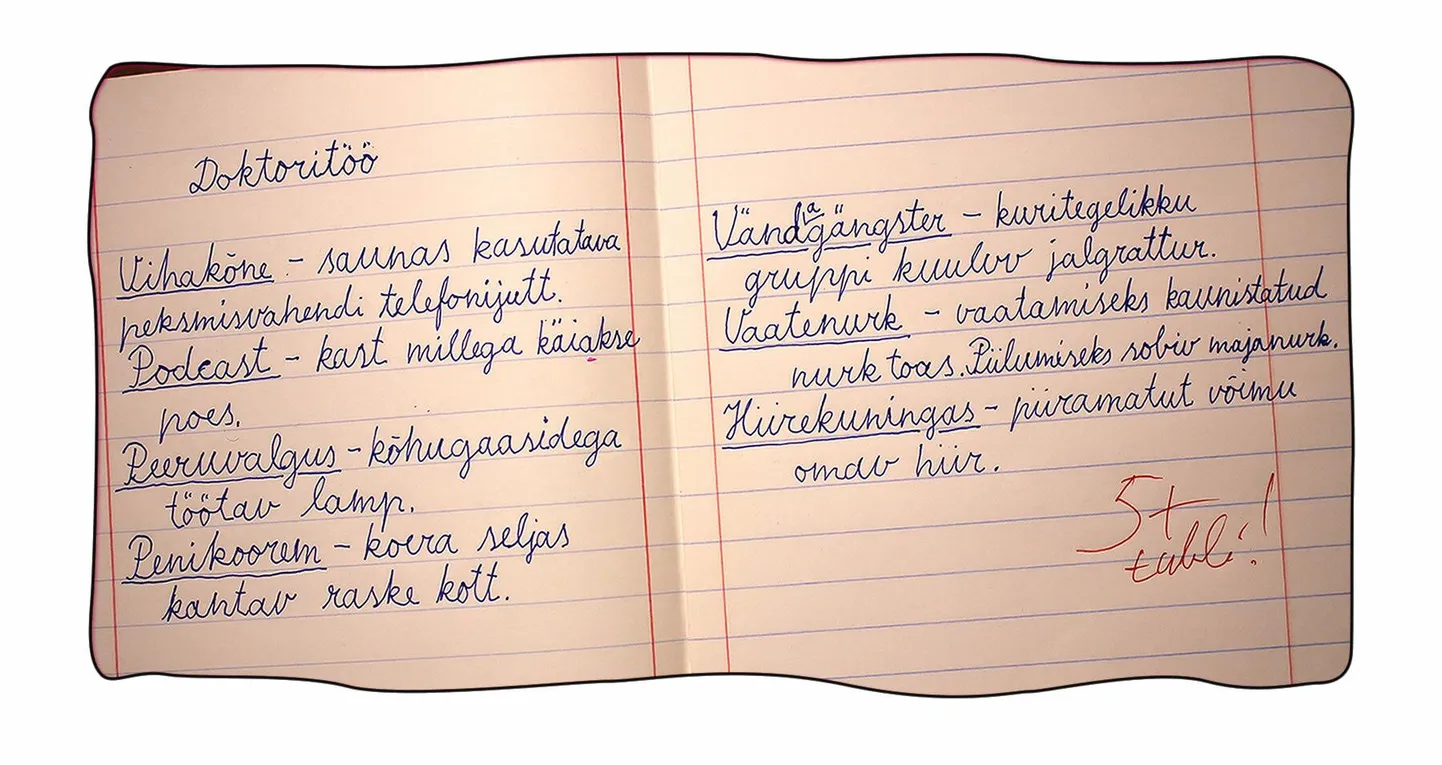 Doktoritöö
Vihakõne - saunas kasutatava
peksmisvahendi telefonijutt.
Podcast - kast millega käiakse
poes.
Peeruvalgus - kõhugaasidega
töötav lamp.
Penikoorem - koera seljas
kantav raske kott.
Vändagängster - kuritegelikku
gruppi kuuluv jalgrattur.
Vaatenurk - vaatamiseks kaunistatud
nurk toas. Piilumiseks sobiv majanurk.
Hiirekuningas - piiramatut võimu
omav hiir.
5+
tubli!!